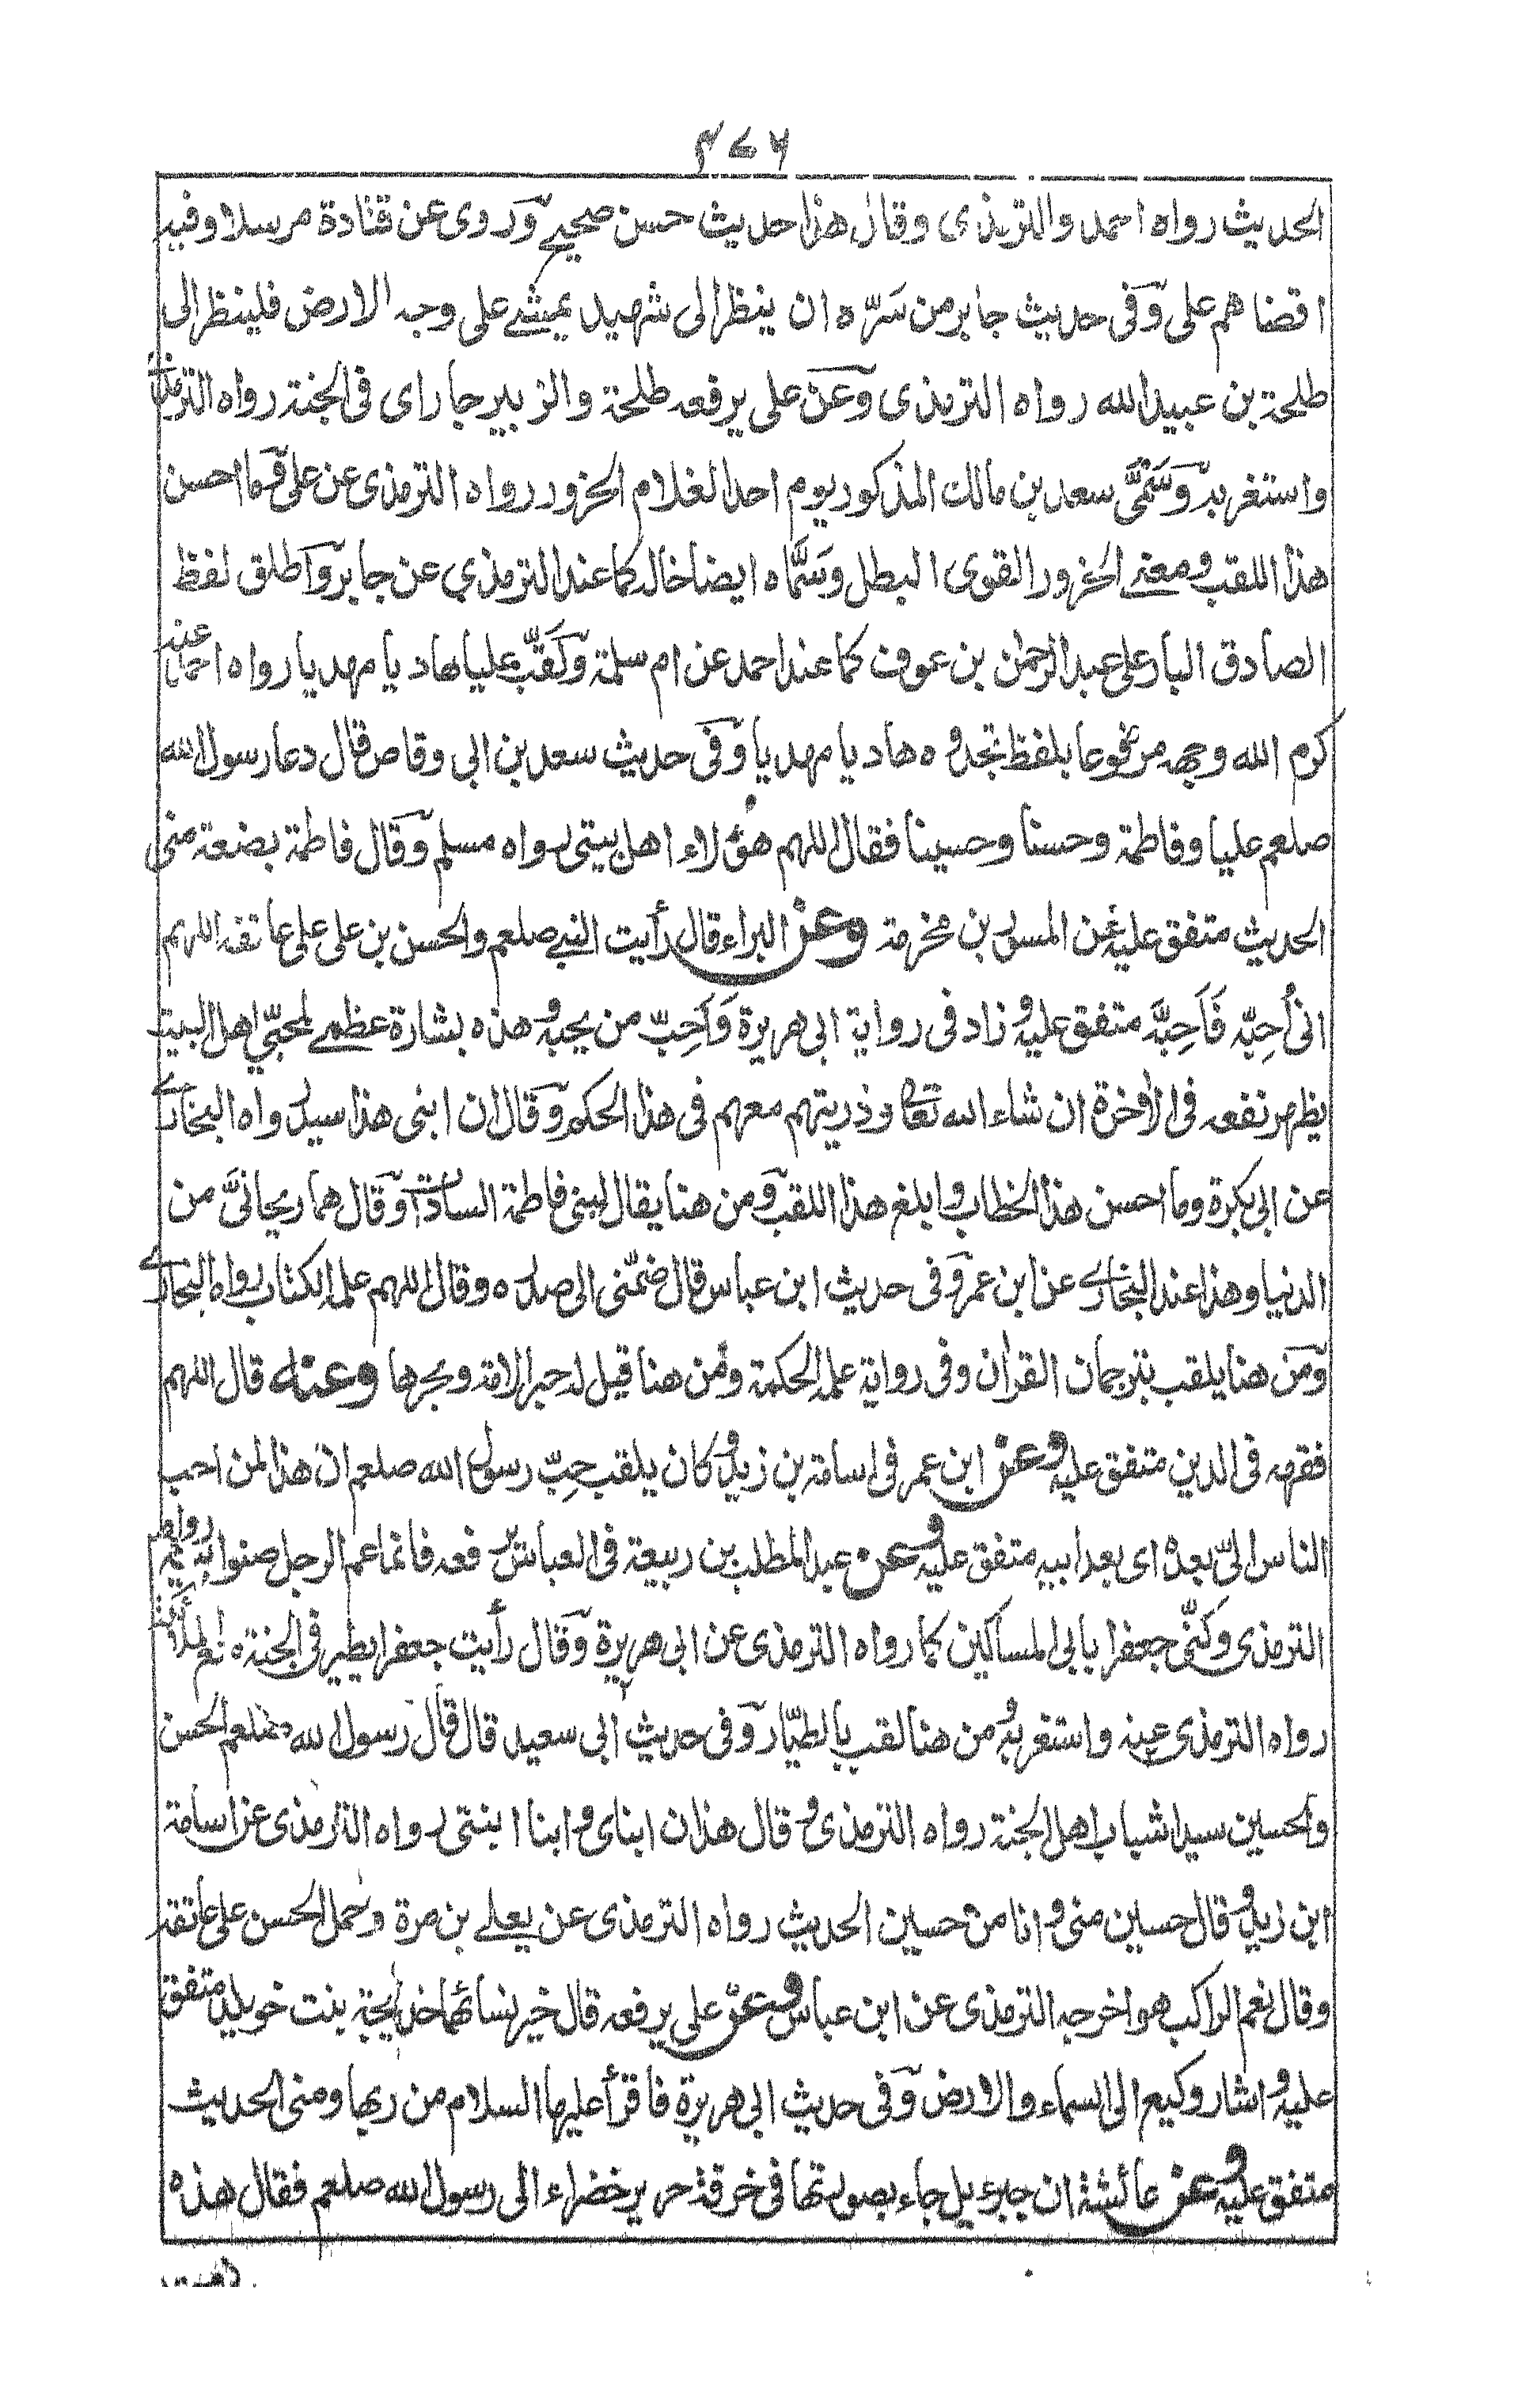 ٤٧٦
الحديث رواه احمد والترمذى وقال هذا حديث حسن صحيح وروى عن قتادة مرسلا وفيه
اقضاهم على وفى حديث جابر من سَرّه ان ينظر الى شهيد يمشے على وجه الارض فلينظر الى
طلحة بن عبيد الله رواه الترمذى وعن على يرفعه طلحة والزبير جاراى فى الجنة رواه الترمذى
واستغربه وَسَمَّى سعد بن مالك المذكور يوم احد الغلام الحزور رواه الترمذى عن على وما احسن
هذا اللقب ومعنے الحزور القوى البطل وَسَّماه ايضا خاله كما عند الترمذي عن جابر واطلق لفظ
الصادق البار على عبد الرحمٰن بن عوف كما عند احمد عن ام سلمة ولَقَّب عليا هاديا مهديا رواه احمد عنه
كرم الله وجهه مرفوعا بلفظ تجدوه هاديا مهديا وفى حديث سعد بن ابى وقاص قال دعا رسول الله
صلعم عليا وفاطمة وحسنا وحسينا فقال اللهم هؤلاء اهل بيتى رواه مسلم وقال فاطمة بضعة منى
الحديث متفق عليه عن المسور بن مخرمة وعن البراء قال رأيت النبے صلعم والحسن بن على على عاتقه اللهم
انى أحِبّه فَاَحِبَّه متفق عليه و زاد فى رواية ابى هريرة وَاَحِبّ من يحبه و هذه بشارة عظمے لمحبّي اهل البيت
يظهر نفعه فى الاٰخرة ان شاء الله تعالى وذريتهم معهم فى هذا الحكم وقال ان ابنى هذا سيد رواه البخارے
عن ابى بكرة وما احسن هذا الخطاب و ابلغ هذا اللقب و من هنا يقال لبنى فاطمة السادات وقال هما ريحانىَّ من
الدنيا وهذا عند البخارے عن ابن عمر وفى حديث ابن عباس قال ضمّنى الى صدره وقال اللهم علمه الكتاب رواه البخارے
ومن هنا يلقب بترجمان القراٰن وفى رواية علمه الحكمة ومن هنا قيل له حبر الامة وبحرها وعنه قال اللهم
فقهه فى الدين متفق عليه وعن ابن عمر فى اسامة بن زيد و كان يلقب حِبّ رسول الله صلعم ان هذا لمن احب
الناس الىّ بعده اى بعد ابيه متفق عليه وعن عبد المطلب بن ربيعة فى العباس يرفعه فانما عم الرجل صنو ابيه رواه
الترمذى وكَنّى جعفرا بابى المساكين كما رواه الترمذى عن ابى هريرة وقال رأيت جعفرا يطير فى الجنة مع الملائكة
رواه الترمذى عنه واستغربه و من هنا لقب بالطيّار وفى حديث ابى سعيد قال قال رسول الله صلعم الحسن
والحسين سيدا شباب اهل الجنة رواه الترمذى و قال هذان ابناى و ابنا ابنتى رواه الترمذى عن اسامة
ابن زيد و قال حسين منى و انا من حسين الحديث رواه الترمذى عن يعلے بن مرة وحمل الحسن على عاتقه
وقال نعم الراكب هو اخرجه الترمذى عن ابن عباس وعن على يرفعه قال خير نسائها خديجة بنت خويلد متفق
عليه و اشار وكيع الى السماء والارض وفى حديث ابى هريرة فاقرأ عليها السلام من ربها ومنى الحديث
متفق عليه وعن عائشة ان جبرءيل جاء بصورتها فى خرقة حرير خضراء الى رسول الله صلعم فقال هذه